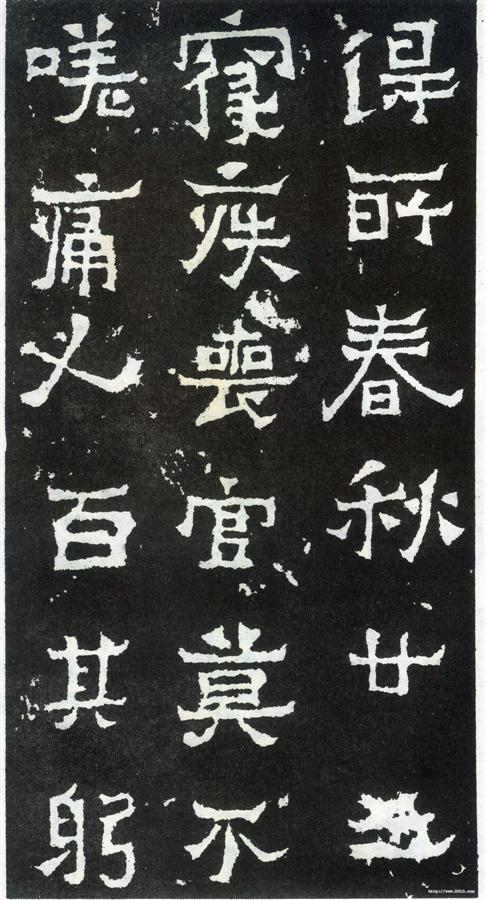 得所春秋廿
寑疾喪官莫不
嗟痛人百其躬
http://www.9610.com